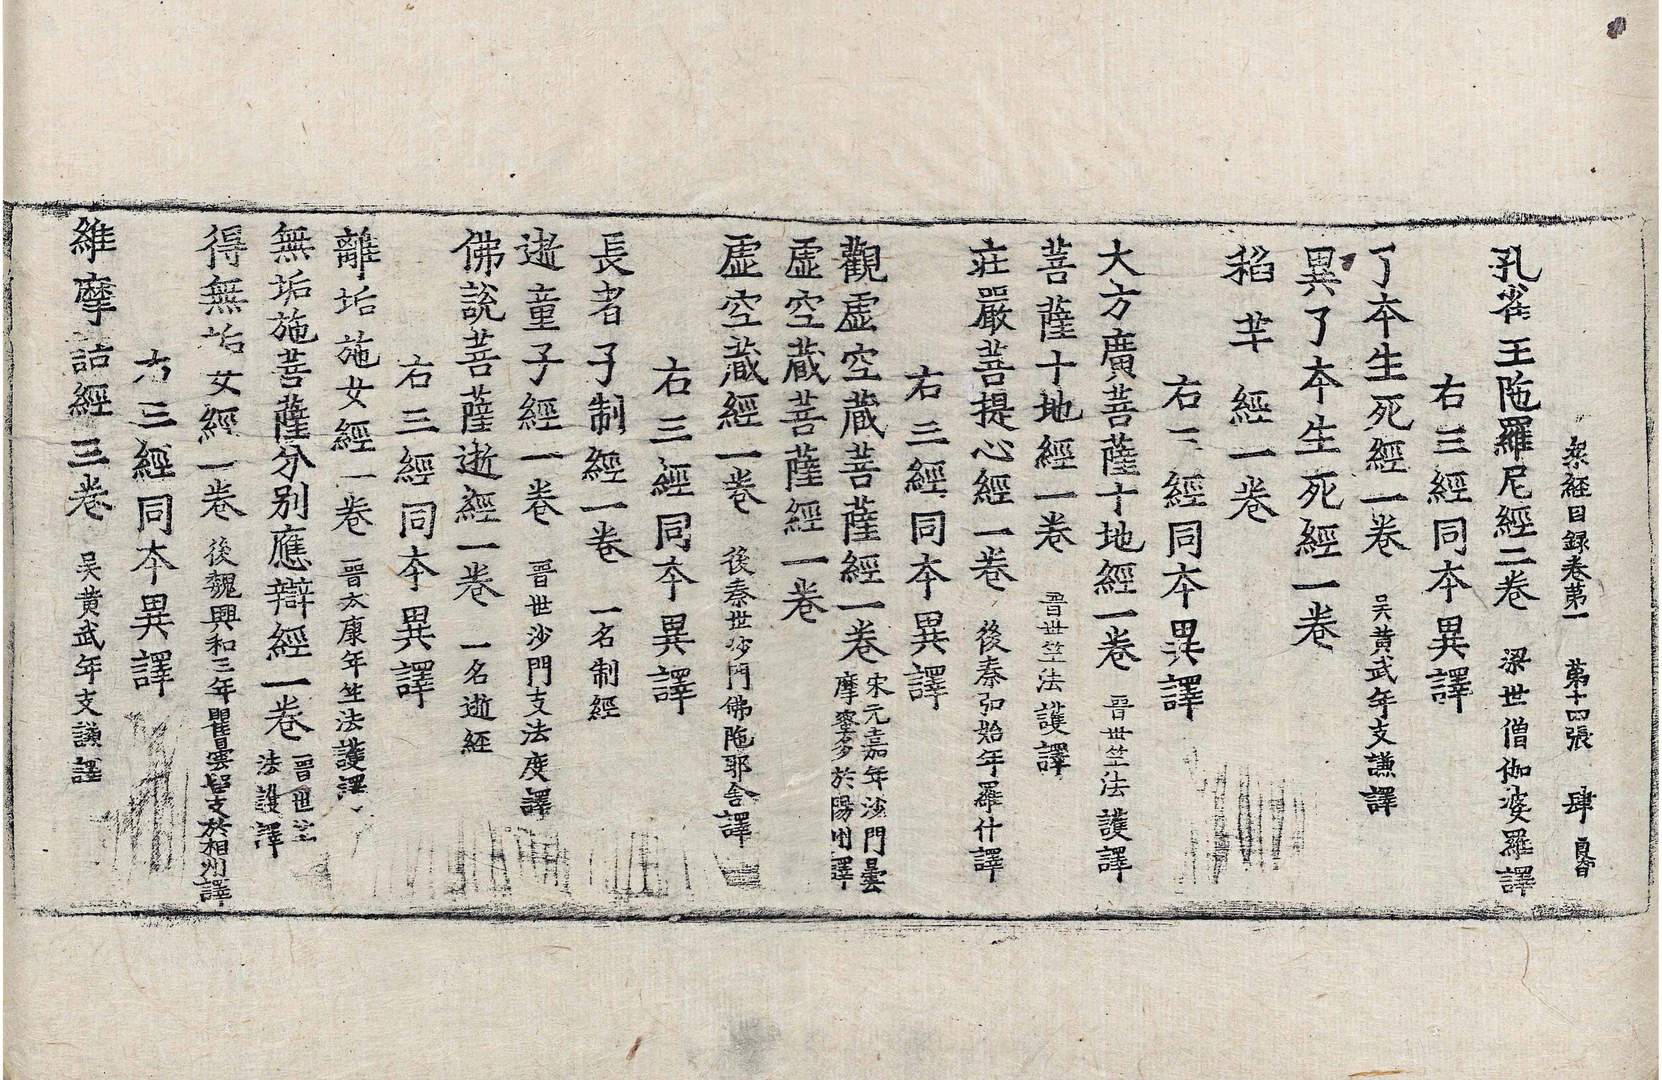 衆經目録卷第一 第十四張 肆
孔雀王陁羅尼經二卷 梁世僧伽婆羅譯
右三經同本異譯
了本生死經一卷 吴黄武年支謙譯
異了本生死經一卷
稻芉經一卷
右三經同本異譯
大方廣菩薩十地經一卷 晉世竺法護譯
菩薩十地經一卷 晉世竺法護譯
莊嚴菩提心經一卷 後秦弘始年羅什譯
右三經同本異譯
觀虚空蔵菩薩經一卷 宋元嘉年沙門曇摩蜜多於陽州譯
虚空蔵菩薩經一卷
虚空蔵經一卷 後秦世沙門佛陁耶舍譯
右三經同本異譯
長者子制經一卷 一名制經
逝童子經一卷 晉世沙門支法度譯
佛說菩薩逝經一卷 一名逝經
右三經同本異譯
離垢施女經一卷 晉太康年竺法護譯
無垢施菩薩分别應辯經一卷 晉世竺法護譯
得無垢女經一卷 後魏興和三年瞿曇留支於相州譯
右三經同本異譯
維摩詰經三卷 吴黄武年支謙譯